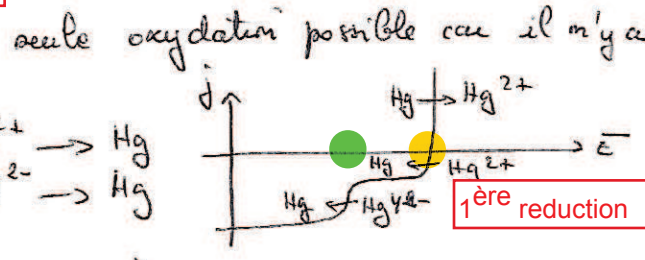 seule oxydation possible car il n'y a
j
Hg → Hg²⁺
+ → Hg
E
Hg ← Hg²⁺
2- → Hg
Hg ← HgY²⁻
1ère reduction